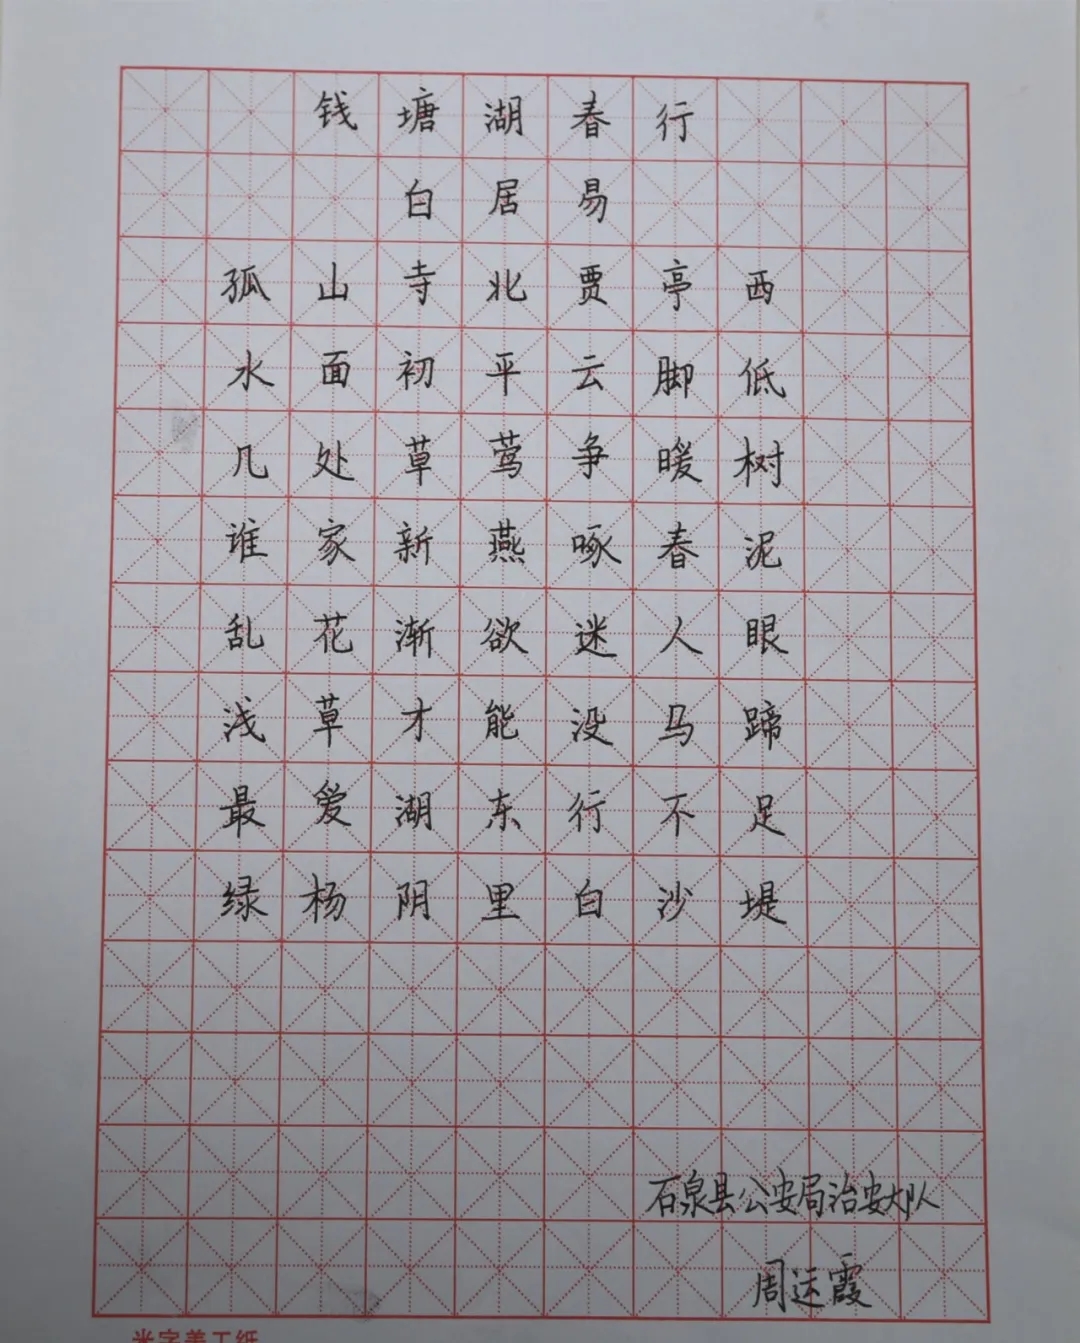 钱塘湖春行
白居易
孤山寺北贾亭西
水面初平云脚低
几处草莺争暖树
谁家新燕啄春泥
乱花渐欲迷人眼
浅草才能没马蹄
最爱湖东行不足
绿杨阴里白沙堤
石泉县公安局治安大队
周运霞